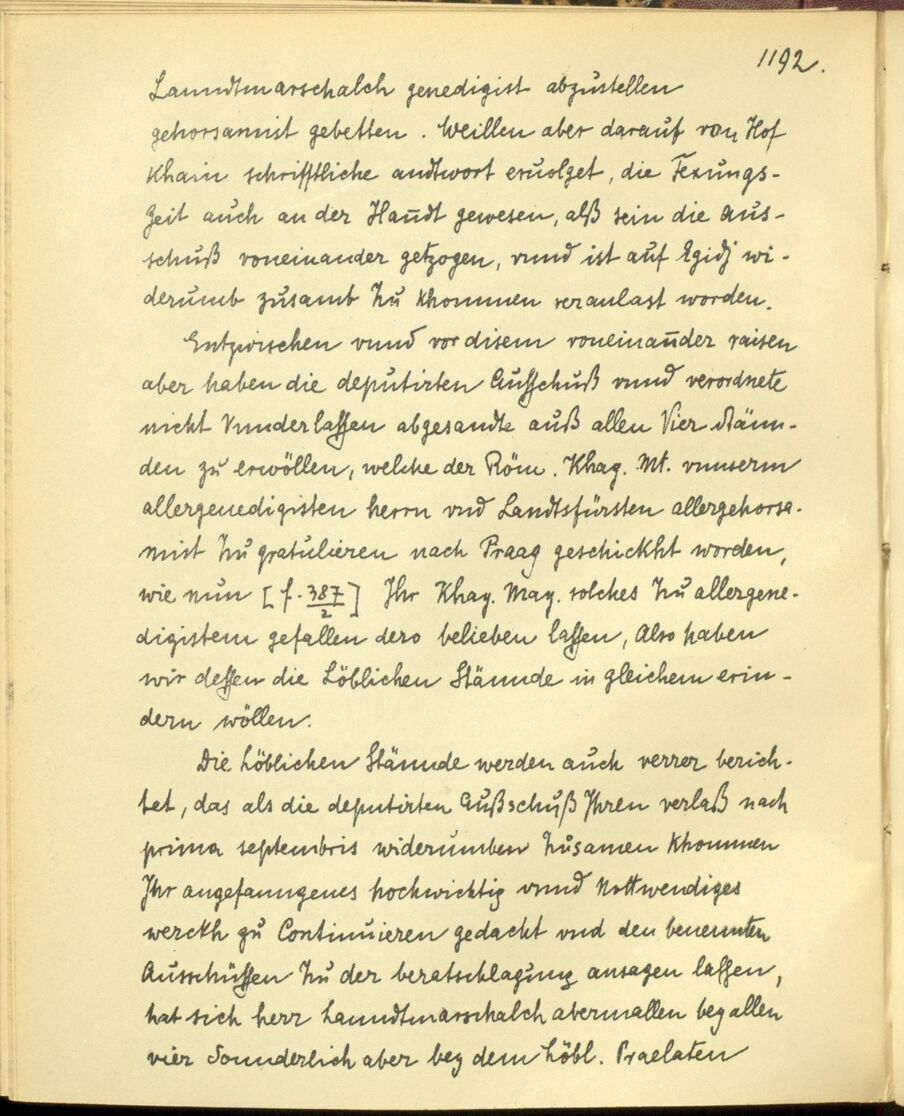 1192.
Lanndtmarschalch genedigist abzustellen
gehorsammit gebetten. Weillen aber darauf von Hof
Khain schrifftliche andtwort eruolget, die Fexungs-
Zeit auch an der Handt gewesen, alß sein die aus-
schuß voneinander getzogen, vnnd ist auf Egidj wi-
derumb zusamb Zu Khommen veranlast worden.
Entzwischen vnnd vor disem voneinander raisen
aber haben die deputirten Außschuß vnnd verordnete
nicht Vnnderlassen abgesandte auß allen Vier Stänn-
den zu erwöllen, welche der Röm. Khay. Mt. vnnserm
allergenedigisten herrn vnd Landtsfürsten allergehorsa-
mist Zu gratulieren nach Praag geschickht worden,
wie nun [f. 387/2] Ihr Khay. May. solches Zu allergene-
digistem gefallen dero belieben lassen, Also haben
wir dessen die Löblichen Stännde in gleichem erin-
dern wöllen.
Die Löblichen Stännde werden auch verrer berich-
tet, das als die deputirten Außschuß Ihren verlaß nach
prima septembris widerumben Zusamen Khommen
Ihr angefanngenes hochwichtig vnnd Nottwendiges
werckh zu Continuieren gedacht vnd den benennten
Ausschüssen Zu der beratschlagung ansagen lassen,
hat sich herr Lanndtmarschalch abermallen bey allen
vier Sonnderlich aber bey dem Löbl. Praelaten